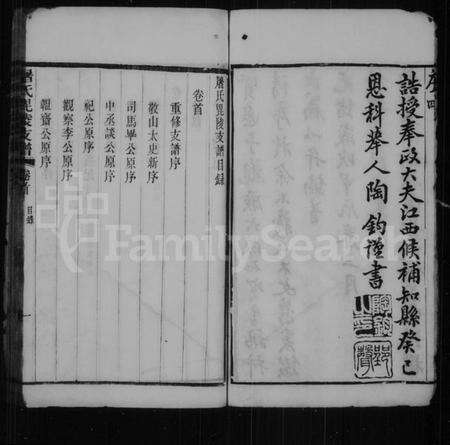 誥授奉政大夫江西候補知縣癸巳
恩科舉人陶鈞謹書
屠氏毘陵支譜目錄
卷首
重修支譜序
敬山太史新序
司馬畢公原序
中丞談公原序
祀公原序
觀察李公原序
報齋公原序
屠氏毘陵支譜 卷首 目錄 一
FamilySearch